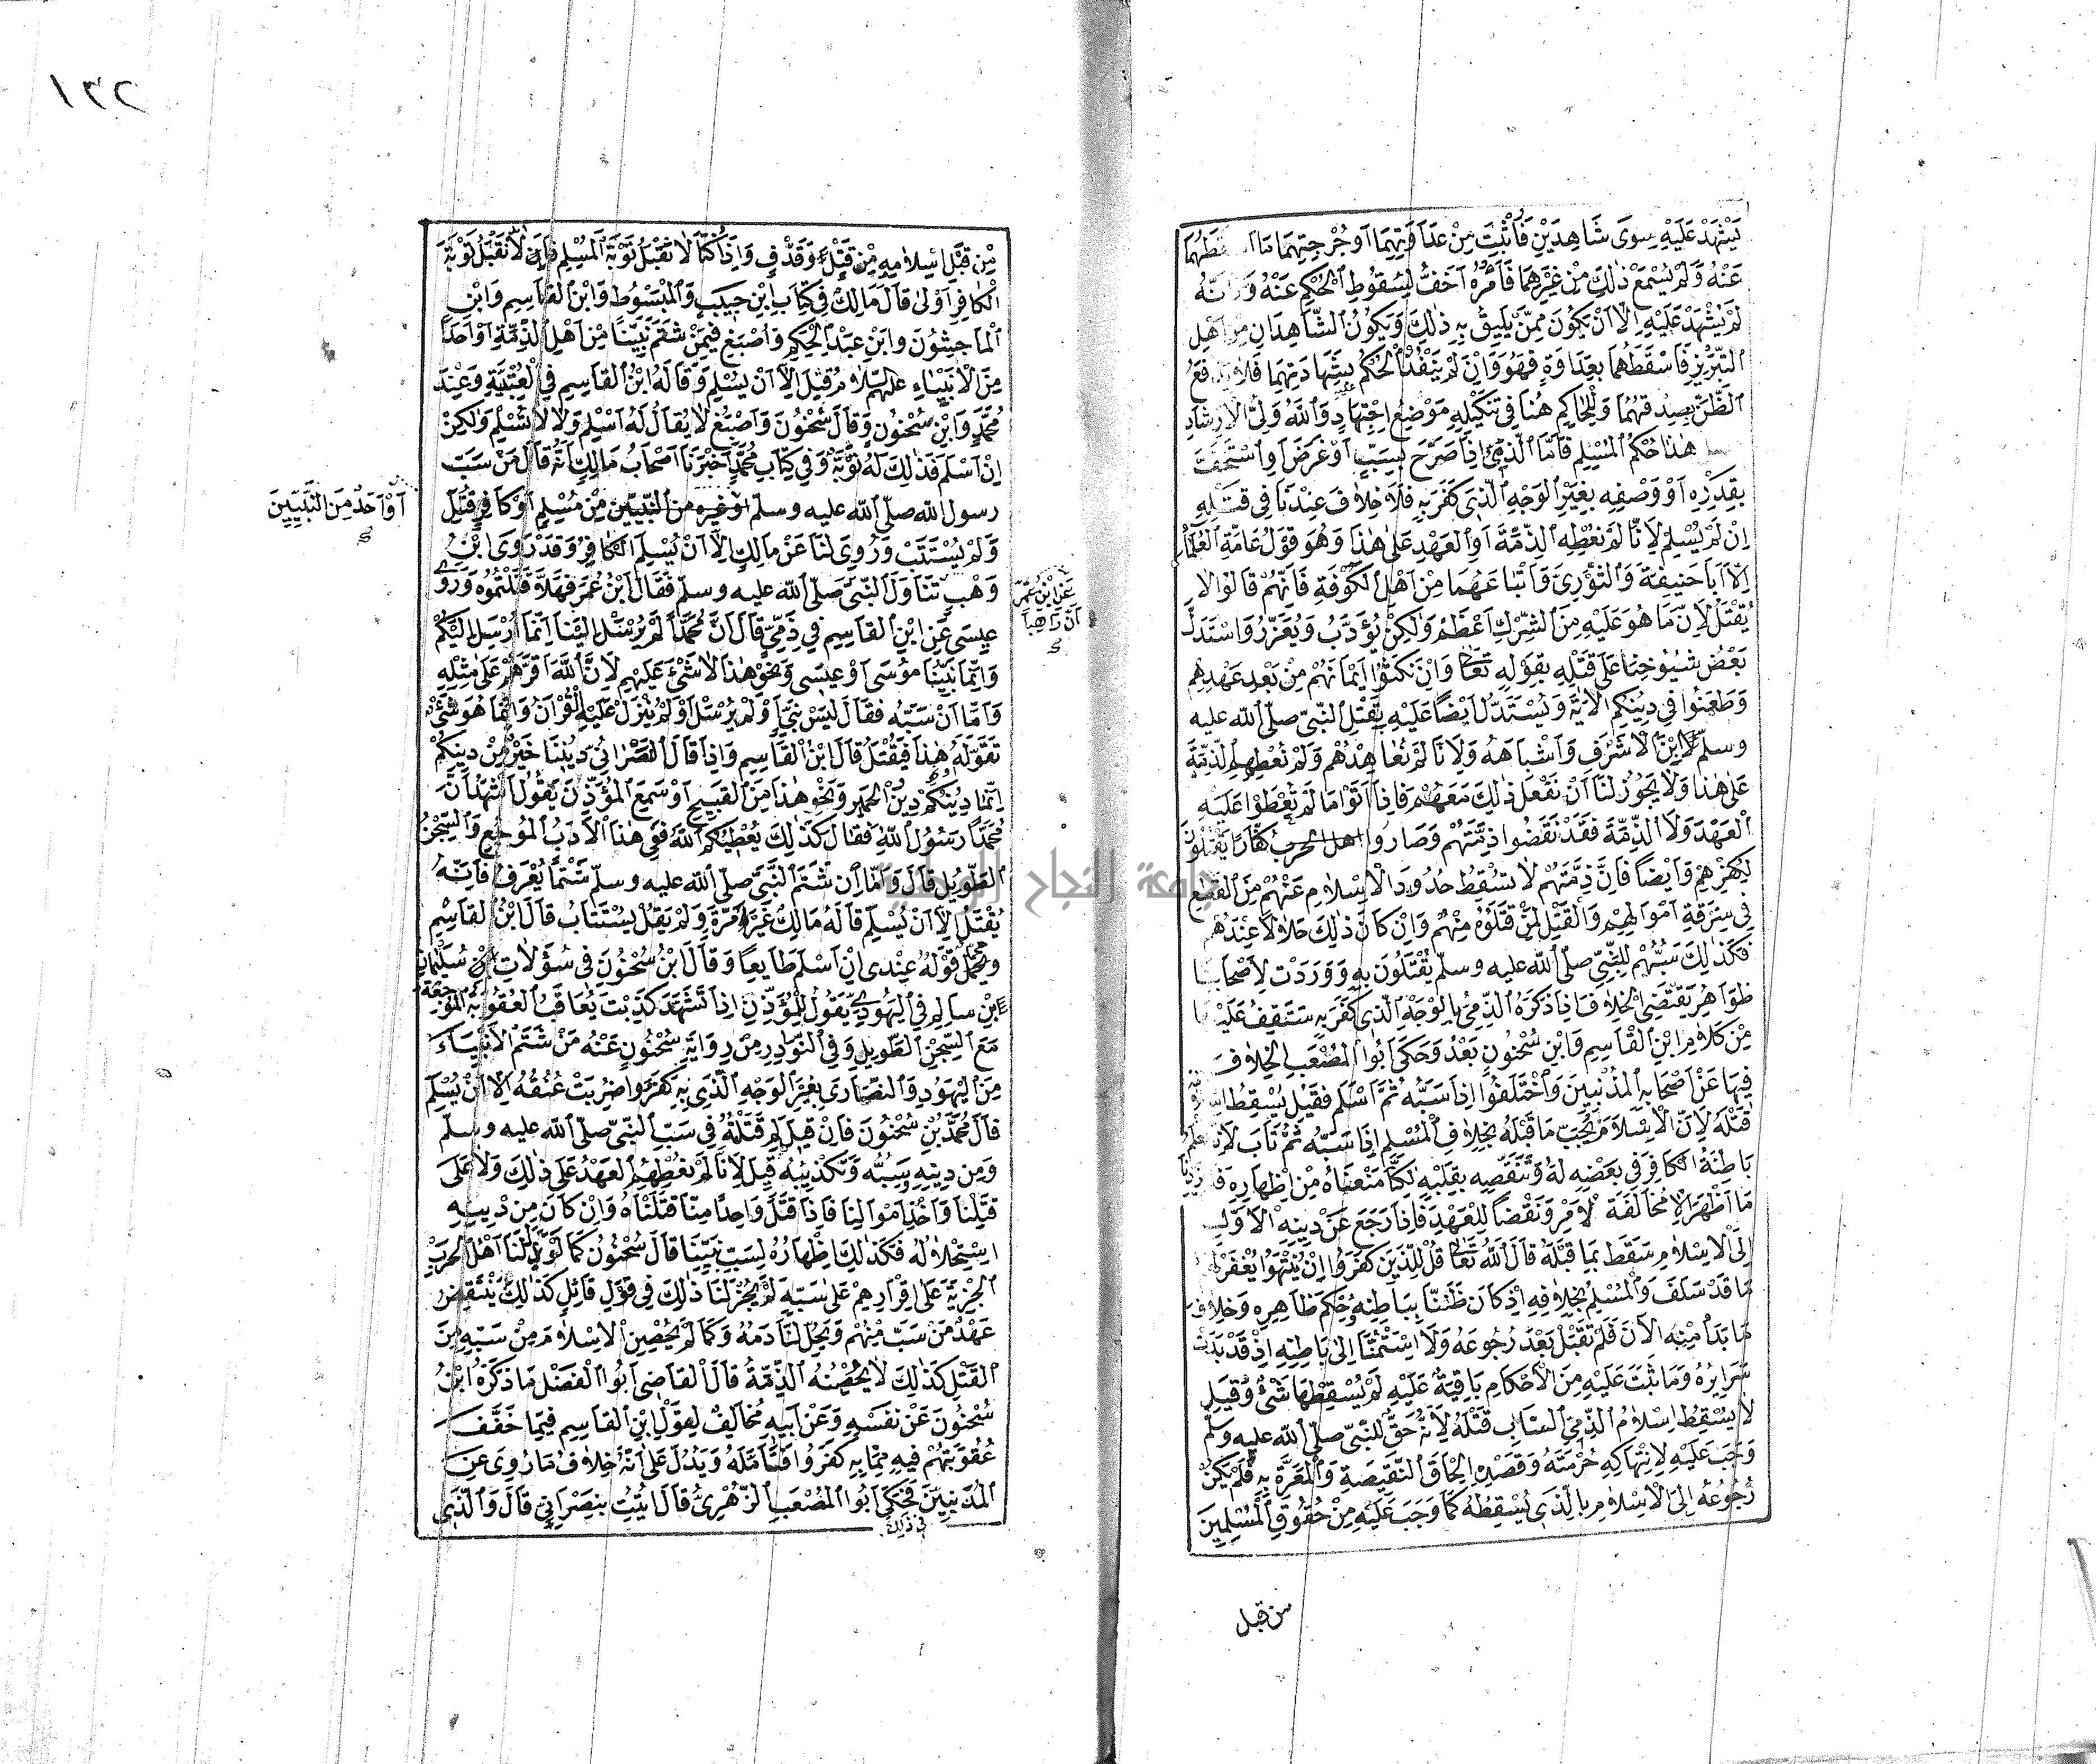 يَشْهَدْ عَلَيْهِ سِوَى شَاهِدَيْنِ فَأُثْبِتَ مِنْ عَدَاوَتِهِمَا اَوْ جُرْحَتِهِمَا مَا اَسْقَطَهُمَا
عَنْهُ وَلَمْ يُسْمَعْ ذٰلِكَ مِنْ غَيْرِهِمَا فَاَمْرُهُ اَخَفُّ لِسُقُوطِ الْحُكْمِ عَنْهُ وَكَاَنَّهُ
لَمْ يُشْهَدْ عَلَيْهِ اِلَّا اَنْ يَكُونَ مِمَّنْ يَلِيقُ بِهِ ذٰلِكَ وَيَكُونُ الشَّاهِدَانِ مِنْ اَهْلِ
التَّبْرِيزِ فَاَسْقَطَهُمَا بِعَدَاوَةٍ فَهُوَ وَاِنْ لَمْ يَنْفُذِ الْحُكْمُ بِشَهَادَتِهِمَا فَلَا يَدْفَعُ
الظَّنَّ بِصِدْقِهِمَا وَلِلْحَاكِمِ هُنَا فِي تَنْكِيلِهِ مَوْضِعُ اِجْتِهَادٍ وَاللّٰهُ وَلِيُّ الْاِرْشَادِ
هٰذَا حُكْمُ الْمُسْلِمِ فَاَمَّا الذِّمِّيُّ اِذَا صَرَّحَ بِسَبِّهِ اَوْ عَرَّضَ اَوِ اسْتَخَفَّ
بِقَدْرِهِ اَوْ وَصَفَهُ بِغَيْرِ الْوَجْهِ الَّذِي كَفَرَ بِهِ فَلَا خِلَافَ عِنْدَنَا فِي قَتْلِهِ
اِنْ لَمْ يُسْلِمْ لِاَنَّا لَمْ نُعْطِهِ الذِّمَّةَ اَوِ الْعَهْدِ عَلَى هٰذَا وَهُوَ قَوْلُ عَامَّةِ الْعُلَمَاءِ
اِلَّا اَبَا حَنِيفَةَ وَالثَّوْرِيَّ وَاَتْبَاعَهُمَا مِنْ اَهْلِ الْكُوفَةِ فَاِنَّهُمْ قَالُوا لَا
يُقْتَلُ لِاَنَّ مَا هُوَ عَلَيْهِ مِنَ الشِّرْكِ اَعْظَمُ وَلٰكِنْ يُؤَدَّبُ وَيُعَزَّرُ وَاسْتَدَلَّ
بَعْضُ شُيُوخِنَا عَلَى قَتْلِهِ بِقَوْلِهِ تَعَا وَاِنْ نَكَثُوا اَيْمَانَهُمْ مِنْ بَعْدِ عَهْدِهِمْ
وَطَعَنُوا فِي دِينِكُمْ الْاٰيَةَ وَيُسْتَدَلُّ اَيْضًا عَلَيْهِ بِقَتْلِ النَّبِيِّ صلّى اللّٰه عليه
وسلّم لِابْنِ الْاَشْرَفِ وَاَشْبَاهَهُ وَلِاَنَّا لَمْ نُعَاهِدْهُمْ وَلَمْ نُعْطِهِمُ الذِّمَّةَ
عَلَى هٰذَا وَلَا يَجُوزُ لَنَا اَنْ نَفْعَلَ ذٰلِكَ مَعَهُمْ فَاِذَا اَتَوْا مَا لَمْ يُعْطَوْا عَلَيْهِ
الْعَهْدَ وَلَا الذِّمَّةَ فَقَدْ نَقَضُوا ذِمَّتَهُمْ وَصَارُوا اهل الحرب كُفَّارًا يُقْتَلُونَ
لِكُفْرِهِمْ وَاَيْضًا فَاِنَّ ذِمَّتَهُمْ لَا تُسْقِطُ حُدُودَ الْاِسْلَامِ عَنْهُمْ مِنَ الْقَطْعِ
فِي سَرِقَةِ اَمْوَالِهِمْ وَالْقَتْلِ لِمَنْ قَتَلُوهُ مِنْهُمْ وَاِنْ كَانَ ذٰلِكَ حَلَالًا عِنْدَهُمْ
فَكَذٰلِكَ سَبُّهُمْ لِلنَّبِيِّ صلّى اللّٰه عليه وسلّم يُقْتَلُونَ بِهِ وَوَرَدَتْ لِاَصْحَابِنَا
ظَوَاهِرُ تَقْتَضِي الْخِلَافَ اِذَا ذَكَرَهُ الذِّمِّيُّ بِالْوَجْهِ الَّذِي كَفَرَ بِهِ سَتَقِفُ عَلَيْهَا
مِنْ كَلَامِ ابْنِ الْقَاسِمِ وَابْنِ سُحْنُونٍ بَعْدُ وَحَكَى اَبُوا الْمُصْعَبِ الْخِلَافَ
فِيهَا عَنْ اَصْحَابِهِ الْمَدَنِيِّينَ وَاخْتَلَفُوا اِذَا سَبَّهُ ثُمَّ اَسْلَمَ فَقِيلَ يُسْقِطُ اِسْلَامُهُ
قَتْلَهُ لِاَنَّ الْاِسْلَامَ يَجُبُّ مَا قَبْلَهُ بِخِلَافِ الْمُسْلِمِ اِذَا سَبَّهُ ثُمَّ تَابَ لِاَنَّا نَعْلَمُ
بَاطِنَةَ الْكَافِرِ فِي بُغْضِهِ لَهُ وَتَنَقُّصِهِ بِقَلْبِهِ لٰكِنَّا مَنَعْنَاهُ مِنْ اِظْهَارِهِ فَلَمْ يَزِدْنَا
مَا اَظْهَرَ اِلَّا مُخَالَفَةً لِلْاَمْرِ وَنَقْضًا لِلْعَهْدِ فَاِذَا رَجَعَ عَنْ دِينِهِ الْاَوَّلِ
اِلَى الْاِسْلَامِ سَقَطَ مَا قَبْلَهُ قَالَ اللّٰهُ تَعَا قُلْ لِلَّذِينَ كَفَرُوا اِنْ يَنْتَهُوا يُغْفَرْ لَهُمْ
مَا قَدْ سَلَفَ وَالْمُسْلِمُ بِخِلَافِهِ اِذْ كَانَ ظَنُّنَا بِبَاطِنِهِ حُكْمَ ظَاهِرِهِ وَخِلَافَ
مَا بَدَا مِنْهُ الْاٰنَ فَلَمْ نَقْبَلْ بَعْدُ رُجُوعَهُ وَلَا اسْتَنَمْنَا اِلَى بَاطِنِهِ اِذْ قَدْ بَدَتْ
سَرَايِرُهُ وَمَا ثَبَتَ عَلَيْهِ مِنَ الْاَحْكَامِ بَاقِيَةٌ عَلَيْهِ لَمْ يُسْقِطْهَا شَيْءٌ وَقِيلَ
لَا يُسْقِطُ اِسْلَامُ الذِّمِّيِّ السَّابِّ قَتْلَهُ لِاَنَّهُ حَقٌّ لِلنَّبِيِّ صلّى اللّٰه عليه وسلّم
وَجَبَ عَلَيْهِ لِانْتِهَاكِهِ حُرْمَتَهُ وَقَصْدِهِ اِلْحَاقَ النَّقِيصَةِ وَالْمَعَرَّةِ بِهِ فَلَمْ يَكُنْ
رُجُوعُهُ اِلَى الْاِسْلَامِ بِالَّذِي يُسْقِطُهُ كَمَا وَجَبَ عَلَيْهِ مِنْ حُقُوقِ الْمُسْلِمِينَ
من قبل
١٣٢
مِنْ قَبْلِ اِسْلَامِهِ مِنْ قَتْلٍ وَقَذْفٍ وَاِذَا كُنَّا لَا نَقْبَلُ تَوْبَةَ الْمُسْلِمِ فَاَنْ لَا نَقْبَلُ تَوْبَةَ
الْكَافِرِ اَوْلَى قَالَ مَالِكٌ فِي كِتَابِ ابْنِ حَبِيبٍ وَالْمَبْسُوطِ وَابْنُ الْقَاسِمِ وَابْنُ
الْمَاجِشُونَ وَابْنُ عَبْدِ الْحَكَمِ وَاَصْبَغُ فِيمَنْ شَتَمَ نَبِيَّنَا مِنْ اَهْلِ الذِّمَّةِ اَوْ اَحَدًا
مِنَ الْاَنْبِيَاءِ عليهم السّلام قُتِلَ اِلَّا اَنْ يُسْلِمَ وَقَالَهُ ابْنُ الْقَاسِمِ فِي الْعُتْبِيَّةِ وَعِنْدَ
مُحَمَّدٍ وَابْنِ سُحْنُونٍ وَقَالَ سُحْنُونَ وَاَصْبَغُ لَا يُقَالُ لَهُ اَسْلِمْ وَلَا لَا تُسْلِمْ وَلٰكِنْ
اِنْ اَسْلَمَ فَذٰلِكَ لَهُ تَوْبَةٌ وَفِي كِتَابِ مُحَمَّدٍ اَخْبَرَنَا اَصْحَابُ مَالِكٍ اَنَّهُ قَالَ مَنْ سَبَّ
رسول اللّٰه صلّى اللّٰه عليه وسلّم اَوْ غيره من النَّبِيِّينَ مِنْ مُسْلِمٍ اَوْ كَافِرٍ قُتِلَ
اَوْ اَحَدٌ مِنَ النَّبِيِّينَ
وَلَمْ يُسْتَتَبْ وَرُوِيَ لَنَا عَنْ مَالِكٍ اِلَّا اَنْ يُسْلِمَ الْكَافِرُ وَقَدْ رَوَى ابْنُ
وَهْبٍ تَنَاوَلَ النَّبِيَّ صلّى اللّٰه عليه وسلّم فَقَالَ ابْنُ عُمَرَ فَهَلَّا قَتَلْتُمُوهُ وَرَوَى
عَنِ ابْنِ عُمَرَ
اَنَّ رَاهِبًا
عِيسَى عَنِ ابْنِ الْقَاسِمِ فِي ذِمِّيٍّ قَالَ اَنَّ مُحَمَّدًا لَمْ يُرْسَلْ اِلَيْنَا اِنَّمَا اُرْسِلَ اِلَيْكُمْ
وَاِنَّمَا نَبِيُّنَا مُوسَى اَوْ عِيسَى وَنَحْوَ هٰذَا لَا شَيْءَ عَلَيْهِمْ لِاَنَّ اللّٰهَ اَقَرَّهُمْ عَلَى مِثْلِهِ
وَاَمَّا اَنْ سَبَّهُ فَقَالَ لَيْسَ بِنَبِيٍّ اَوْ لَمْ يُرْسَلْ اَوْ لَمْ يُنْزَلْ عَلَيْهِ الْقُرْاٰنُ وَاِنَّمَا هُوَ شَيْءٌ
تَقَوَّلَهُ هٰذَا فَيُقْتَلُ قَالَ ابْنُ الْقَاسِمِ وَاِذَا قَالَ النَّصْرَانِيُّ دِينُنَا خَيْرٌ مِنْ دِينِكُمْ
اِنَّمَا دِينُكُمْ دِينُ الْحَمِيرِ وَنَحْوَ هٰذَا مِنَ الْقَبِيحِ اَوْ سَمِعَ الْمُؤَذِّنَ يَقُولُ اَشْهَدُ اَنَّ
مُحَمَّدًا رَسُولُ اللّٰهِ فَقَالَ كَذٰلِكَ يُعْطِيكُمُ اللّٰهُ فَفِي هٰذَا الْاَدَبُ الْمُوجِعُ وَالسِّجْنُ
الطَّوِيلُ قَالَ وَاَمَّا اِنْ شَتَمَ النَّبِيَّ صلّى اللّٰه عليه وسلّم شَتْمًا يُعْرَفُ فَاِنَّهُ
يُقْتَلُ اِلَّا اَنْ يُسْلِمَ قَالَهُ مَالِكٌ غَيْرَ مَرَّةٍ وَلَمْ يَقُلْ يُسْتَتَابُ قَالَ ابْنُ الْقَاسِمِ
وَمَحْمَلُ قَوْلِهِ عِنْدِي اِنْ اَسْلَمَ طَايِعًا وَقَالَ ابْنُ سُحْنُونَ فِي سُؤَلَاتِ سُلَيْمَانَ
ابْنِ سَالِمٍ فِي الْيَهُودِيِّ يَقُولُ لِلْمُؤَذِّنِ اِذَا تَشَهَّدَ كَذَبْتَ يُعَاقَبُ الْعُقُوبَةَ الْمُوجِعَةَ
مَعَ السِّجْنِ الطَّوِيلِ وَفِي النَّوَادِرِ مِنْ رِوَايَةِ سُحْنُونٍ عَنْهُ مَنْ شَتَمَ الْاَنْبِيَاءَ
مِنَ الْيَهُودِ وَالنَّصَارَى بِغَيْرِ الْوَجْهِ الَّذِي بِهِ كَفَرُوا ضُرِبَتْ عُنُقُهُ اِلَّا اَنْ يُسْلِمَ
قَالَ مُحَمَّدُ بْنُ سُحْنُونَ فَاِنْ قِيلَ لِمَ قَتَلْتَهُ فِي سَبِّ النَّبِيِّ صلّى اللّٰه عليه وسلّم
وَمِنْ دِينِهِ سَبُّهُ وَتَكْذِيبُهُ قِيلَ لِاَنَّا لَمْ نُعْطِهِمُ الْعَهْدَ عَلَى ذٰلِكَ وَلَا عَلَى
قَتْلِنَا وَاَخْذِ اَمْوَالِنَا فَاِذَا قَتَلَ وَاحِدًا مِنَّا قَتَلْنَاهُ وَاِنْ كَانَ مِنْ دِينِهِ
اِسْتِحْلَالُهُ فَكَذٰلِكَ اِظْهَارُهُ لِسَبِّ نَبِيِّنَا قَالَ سُحْنُونُ كَمَا لَوْ بَذَلَ لَنَا اَهْلُ الْحَرْبِ
الْجِزْيَةَ عَلَى اِقْرَارِهِمْ عَلَى سَبِّهِ لَمْ يَجُزْ لَنَا ذٰلِكَ فِي قَوْلِ قَائِلٍ كَذٰلِكَ يَنْتَقِضُ
عَهْدُ مَنْ سَبَّ مِنْهُمْ وَيَحِلُّ لَنَا دَمُهُ وَكَمَا لَمْ يُحْصِنِ الْاِسْلَامُ مَنْ سَبَّهُ مِنَ
الْقَتْلِ كَذٰلِكَ لَا يُحْصِنُهُ الذِّمَّةُ قَالَ الْقَاضِي اَبُوا الْفَضْلِ مَا ذَكَرَهُ ابْنُ
سُحْنُونَ عَنْ نَفْسِهِ وَعَنْ اَبِيهِ مُخَالِفٌ لِقَوْلِ ابْنِ الْقَاسِمِ فِيمَا خَفَّفَ
عُقُوبَتَهُمْ فِيهِ مِمَّا بِهِ كَفَرُوا فَتَاَمَّلْهُ وَيَدُلُّ عَلَى اَنَّهُ خِلَافُ مَا رُوِيَ عَنِ
الْمَدَنِيِّينَ فَحَكَى اَبُوا الْمُصْعَبِ الزُّهْرِيُّ قَالَ اُتِيتُ بِنَصْرَانِيٍّ قَالَ وَالَّذِي
فِي ذٰلِكَ
جامعة النجاح الوطنية